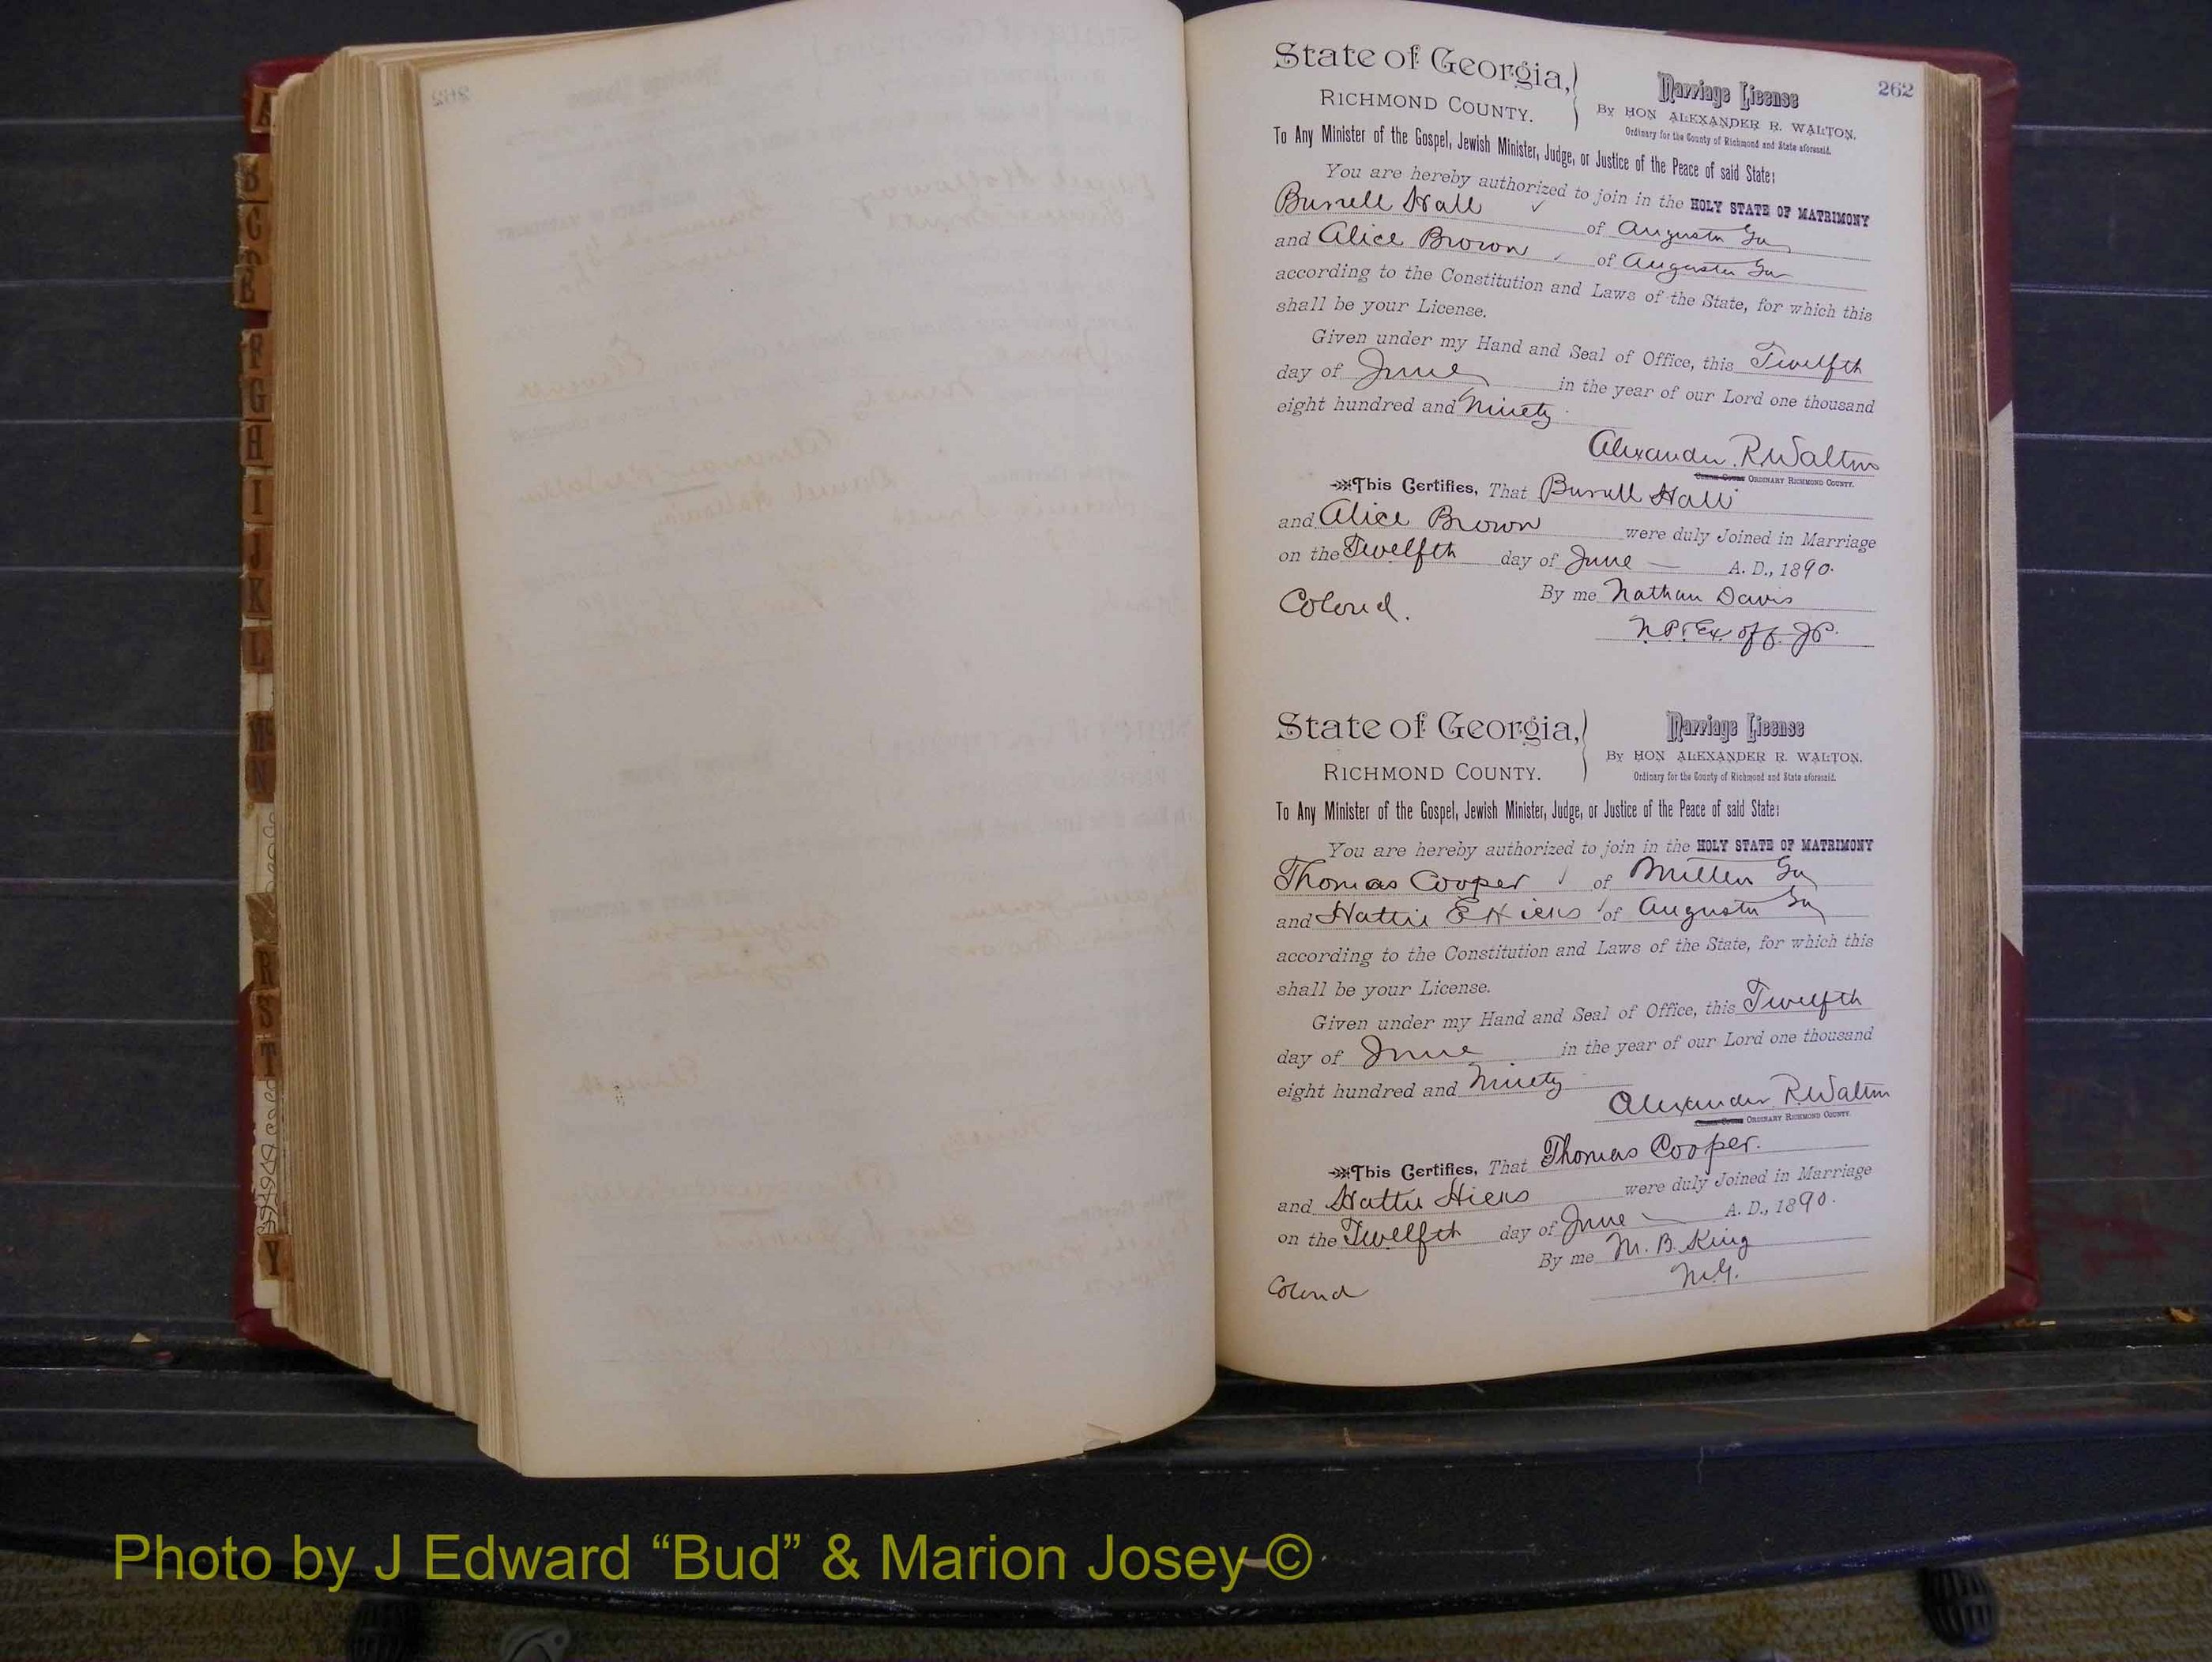 262
State of Georgia,
RICHMOND COUNTY.
Marriage License
By HON ALEXANDER R. WALTON.
Ordinary for the County of Richmond and State aforesaid.
To Any Minister of the Gospel, Jewish Minister, Judge, or Justice of the Peace of said State:
You are hereby authorized to join in the HOLY STATE OF MATRIMONY
Burrell Hall of Augusta Ga
and Alice Brown of Augusta Ga
according to the Constitution and Laws of the State, for which this
shall be your License.
Given under my Hand and Seal of Office, this Twelfth
day of June in the year of our Lord one thousand
eight hundred and Ninety
Alexander R. Walton
ORDINARY RICHMOND COUNTY.
This Certifies, That Burrell Hall
and Alice Brown were duly Joined in Marriage
on the Twelfth day of June A. D., 1890.
By me Nathan Davis
Colored.
N.P. & Ex off. J.P.
State of Georgia,
RICHMOND COUNTY.
Marriage License
By HON ALEXANDER R. WALTON.
Ordinary for the County of Richmond and State aforesaid.
To Any Minister of the Gospel, Jewish Minister, Judge, or Justice of the Peace of said State:
You are hereby authorized to join in the HOLY STATE OF MATRIMONY
Thomas Cooper of Millen Ga
and Hattie E Hicks of Augusta Ga
according to the Constitution and Laws of the State, for which this
shall be your License.
Given under my Hand and Seal of Office, this Twelfth
day of June in the year of our Lord one thousand
eight hundred and Ninety
Alexander R. Walton
ORDINARY RICHMOND COUNTY.
This Certifies, That Thomas Cooper.
and Hattie Hicks were duly Joined in Marriage
on the Twelfth day of June A. D., 1890.
By me M. B. King
M.G.
Colored
A
B
C
E
F
G
H
I
J
K
L
N
R
S
T
Y
Photo by J Edward “Bud” & Marion Josey ©